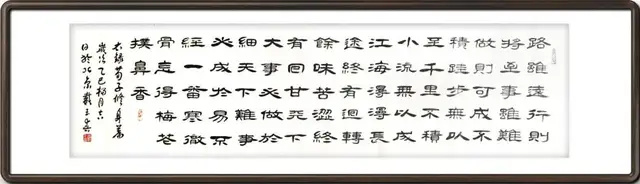 路雖遠行則
將至事雖難
做則可成不
積跬步無以
至千里不積
小流無以成
江海漫漫長
途終有迴轉
餘味苦澀終
有回甘天下
大事必做於
細天下難事
必成於易不
經一番寒徹
骨怎得梅花
撲鼻香
右錄荀子修身篇
歲次乙巳月
日於北京